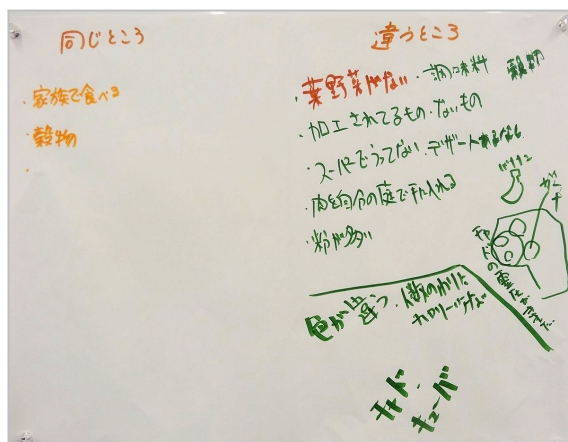 同じところ
・家族で食べる
・穀物
・
違うところ
・葉野菜がない ・調味料 穀物
・加工されてるもの・ないもの
・スーパーでうってない ・デザートあるなし
・肉を自分の庭で手に入れる
・粉が多い
色が違う ・人数のわりに
カロリー
チャド・
キューバ